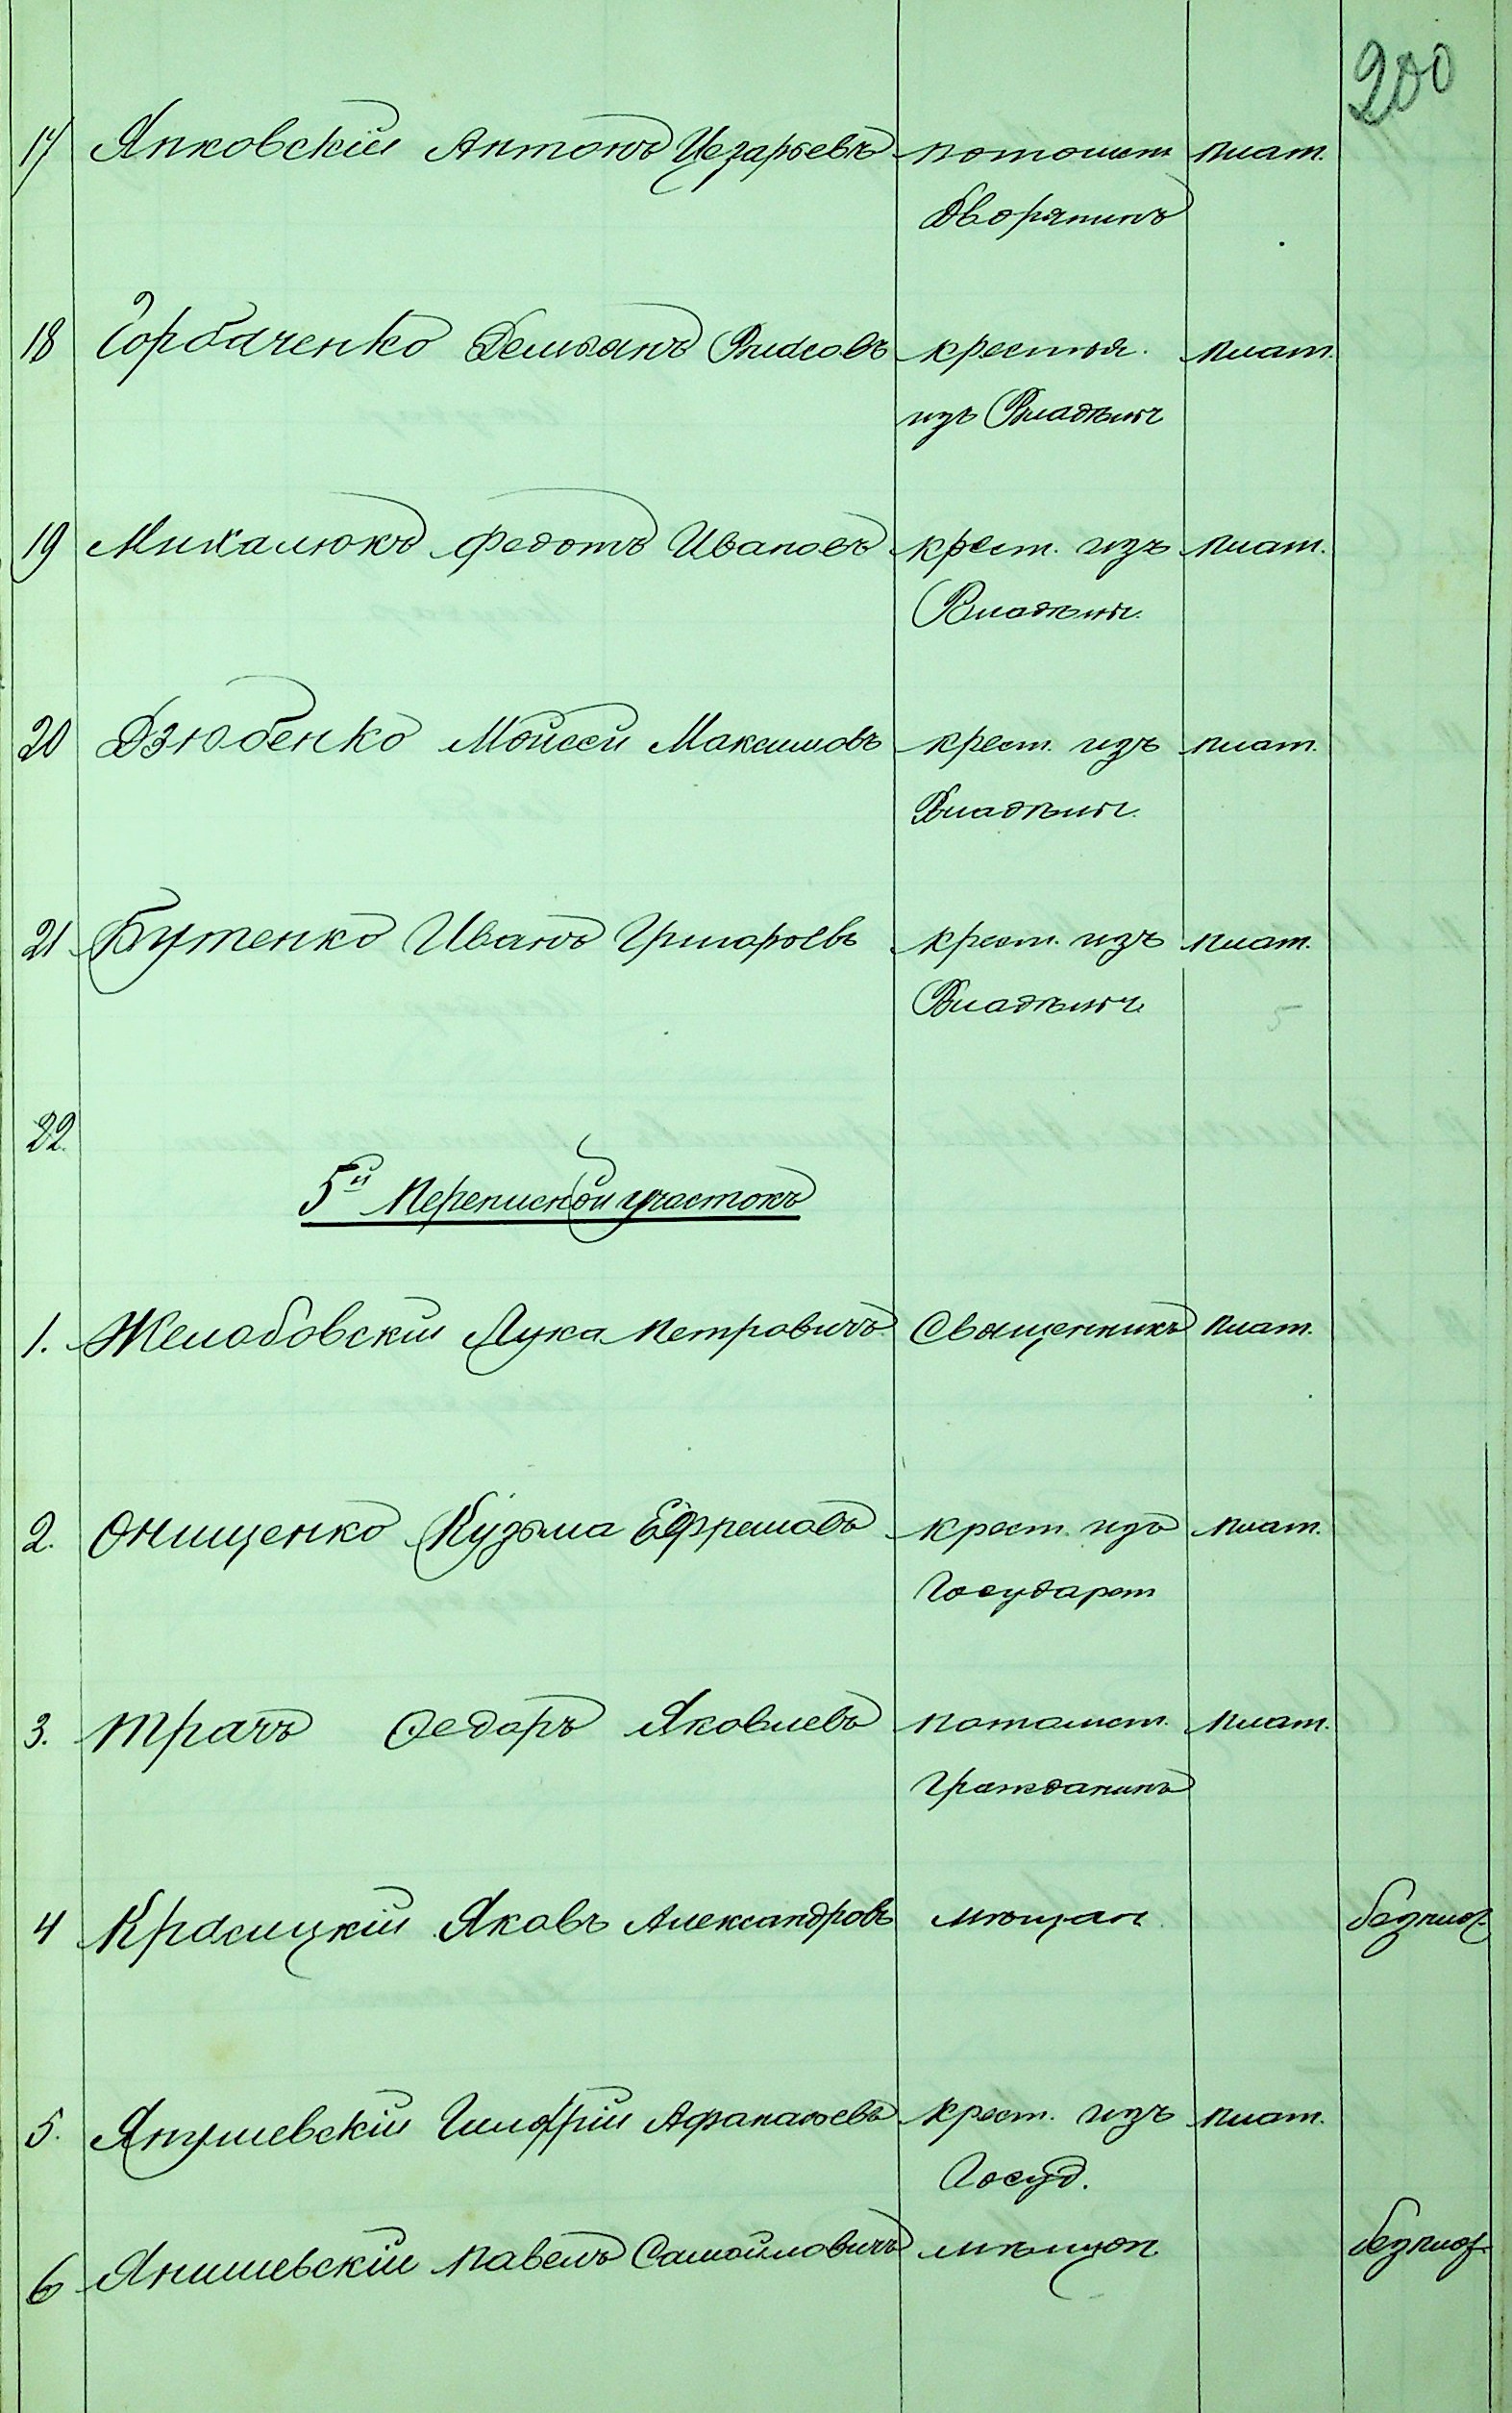 200
17 Янковскій Антонъ Цезарьевъ потомст. плат.
дворянинъ
18 Горбаченко Демьянъ крестья. плат.
изъ Владѣльч
19 Михалюкъ Федотъ Ивановъ крест. изъ плат.
Владѣльч.
20 Дзюбенко Мойсей Максимовъ крест. изъ плат.
Владѣльч.
21 Бутенко Иванъ Григорьевъ крест. изъ плат.
Владѣльч.
22.
5й Переписной участокъ
1. Желобовскій Лука Петровичъ Священникъ плат.
2. Онищенко Кузьма Ефремовъ крест. изъ плат.
Государст
3. Трачъ Ѳедоръ Яковлевъ потомст. плат.
Гражданинъ
4 Красицкій Яковъ Александровъ мѣщан. безплат.
5. Янушевскій Афанасьевъ крест. изъ плат.
Госуд.
6 Янишевскій Павелъ Самойловичъ мѣщан. безплат.